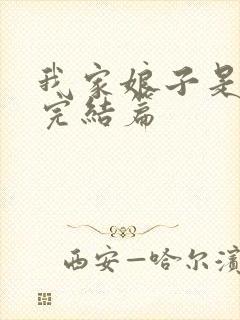 我家娘子是
完结篇
西安—哈尔滨